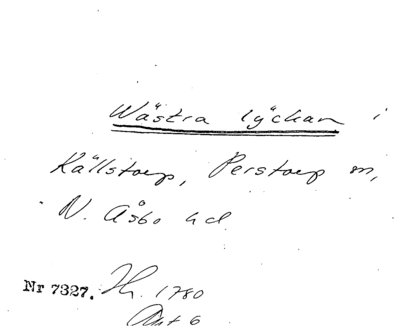 Wästra lÿckan i
Källstorp, Perstorp sn,
N. Åsbo hd.
Nr 7327. Lh. 1780
Akt 6